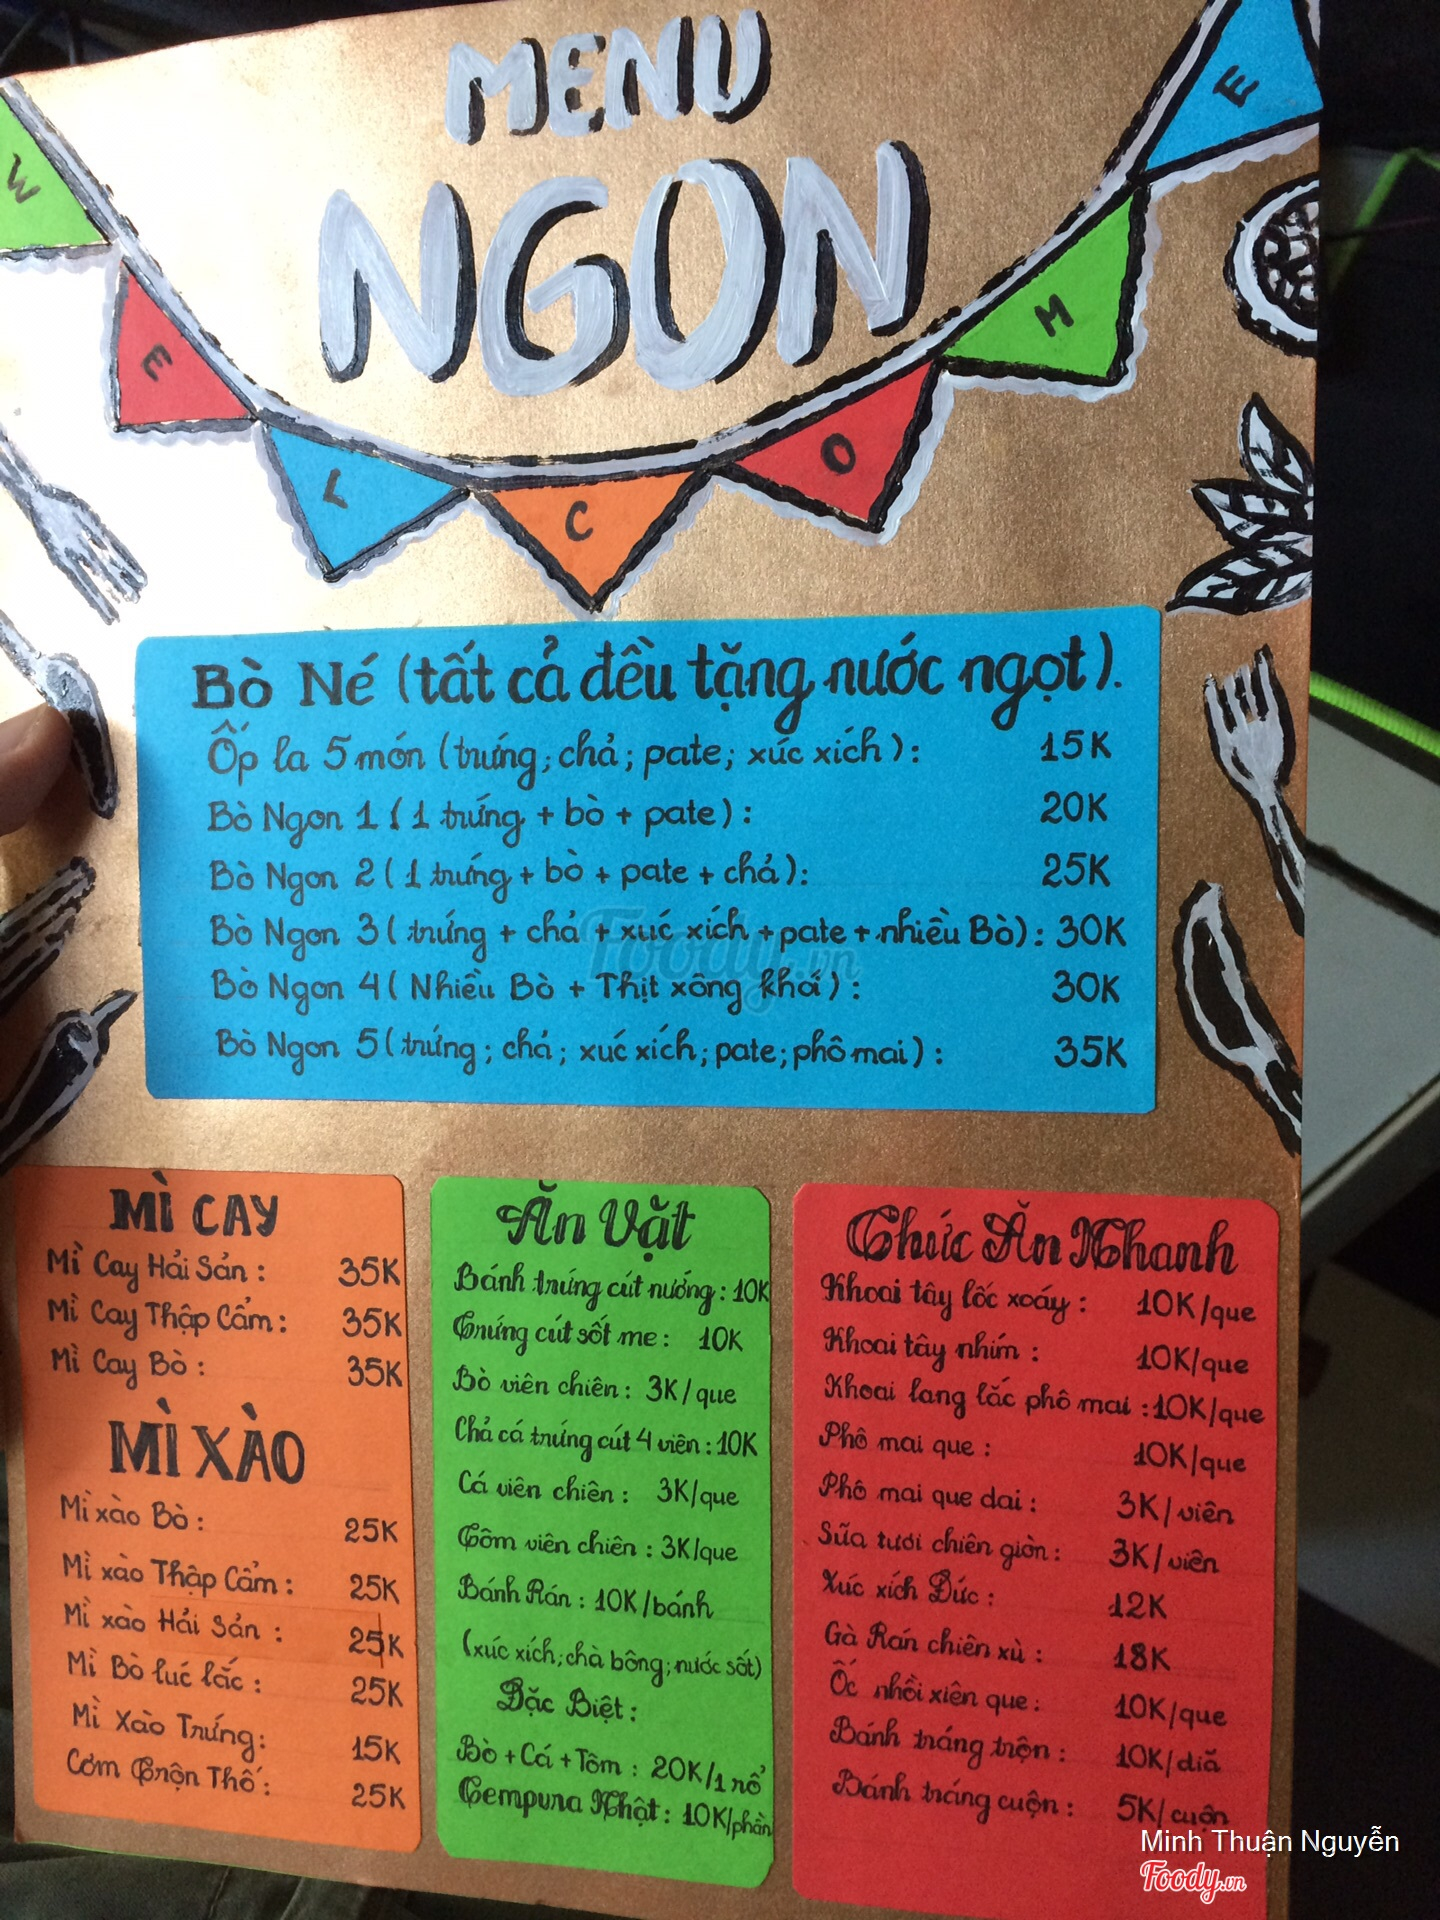 MENU
NGON
WELCOME
Bò Né (tất cả đều tặng nước ngọt).
Ốp la 5 món (trứng; chả; pate; xúc xích): 15K
Bò Ngon 1 (1 trứng + bò + pate): 20K
Bò Ngon 2 (1 trứng + bò + pate + chả): 25K
Bò Ngon 3 (trứng + chả + xúc xích + pate + nhiều Bò): 30K
Bò Ngon 4 (Nhiều Bò + Thịt xông khói): 30K
Bò Ngon 5 (trứng; chả; xúc xích; pate; phô mai): 35K
Foody.vn
MÌ CAY
Mì Cay Hải Sản: 35K
Mì Cay Thập Cẩm: 35K
Mì Cay Bò: 35K
MÌ XÀO
Mì xào Bò: 25K
Mì xào Thập Cẩm: 25K
Mì xào Hải Sản: 25K
Mì Bò lúc lắc: 25K
Mì Xào Trứng: 15K
Cơm Trộn Thố: 25K
Ăn Vặt
Bánh trứng cút nướng: 10K
Trứng cút sốt me: 10K
Bò viên chiên: 3K/que
Chả cá trứng cút 4 viên: 10K
Cá viên chiên: 3K/que
Tôm viên chiên: 3K/que
Bánh Rán: 10K/bánh
(xúc xích; chà bông; nước sốt)
Đặc Biệt:
Bò + Cá + Tôm: 20K/1 rổ
Tempura Nhật: 10K/phần
Thức Ăn Nhanh
Khoai tây lốc xoáy: 10K/que
Khoai tây nhím: 10K/que
Khoai lang lắc phô mai: 10K/que
Phô mai que: 10K/que
Phô mai que dai: 3K/viên
Sữa tươi chiên giòn: 3K/viên
Xúc xích Đức: 12K
Gà Rán chiên xù: 18K
Ốc nhồi xiên que: 10K/que
Bánh tráng trộn: 10K/diã
Bánh tráng cuộn: 5K/cuộn
Minh Thuận Nguyễn
Foody.vn